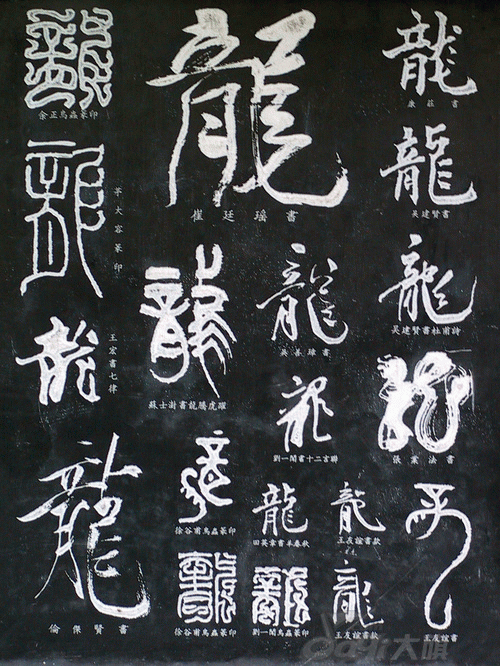 龍
余正鳥蟲篆印
龍
崔廷瑶書
龍
康莊書
龍
茅大容篆印
龍
吴建賢書
龍
王宏書七律
龍
蘇士澍書龍騰虎躍
龍
吴善璋書
龍
吴建賢書杜甫詩
龍
劉一聞書十二言聯
龍
張業法書
龍
倫傑賢書
龍
徐谷甫鳥蟲篆印
龍
田英章書羊春秋
龍
王友誼書款
龍
王友誼書
龍
徐谷甫鳥蟲篆印
龍
劉一聞鳥蟲篆印
龍
王友誼書款